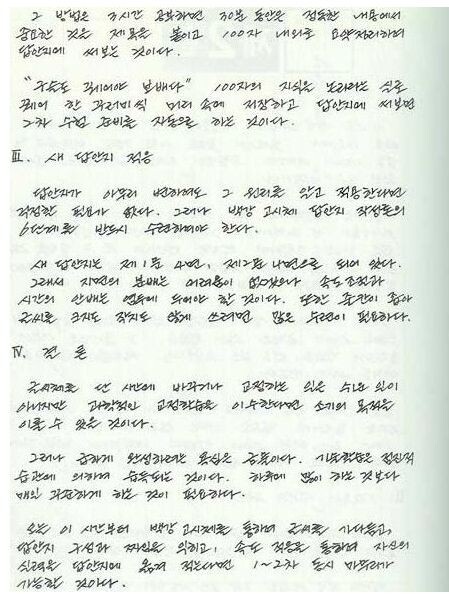 그 방법은 3시간 공부하면 30분 동안은 점독한 내용에서
중요한 것은 제목을 붙이고 100자 내외로 요약정리하여
답안지에 써보는 것이다.
"구슬도 꿰어야 보배다" 100자의 지식은 논리라는 실로
꿰어 한 꾸러미씩 머리 속에 저장하고 답안지에 써보면
2차 수험 준비를 자동으로 하는 것이다.
Ⅲ. 새 답안지 적응
답안지가 아무리 변하여도 그 원리를 알고 적응한다면
걱정할 필요가 없다. 그러나 백강 고시체 답안지 작성론의
6단계를 반드시 수련하여야 한다.
새 답안지는 제1문 4면, 제2문 4면으로 되어 있다.
그래서 지면의 분배는 어려움이 없겠으나 속도조절과
시간의 안배는 염두에 두어야 할 것이다. 또한 줄간이 좁아
글씨를 크지도 작지도 않게 쓰려면 많은 수련이 필요하다.
Ⅳ. 결론
글씨체를 단 시간에 바꾸거나 교정하는 일은 쉬운 일이
아니지만 과학적인 교정학습을 이수한다면 소기의 목적을
이룰 수 있을 것이다.
그러나 급하게 완성하려는 욕심은 금물이다. 기능학습은 점진적
습관에 의하여 습득되는 것이다. 하루에 많이 하는 것보다
매일 꾸준하게 하는 것이 필요하다.
오늘 이 시간부터 백강 고시체를 통하여 글씨를 가다듬고,
답안지 구성과 짜임을 익히고, 속도 적응을 통하여 자신의
실력을 답안지에 옮겨 적는다면 1~2차 동시 마무리가
가능할 것이다.